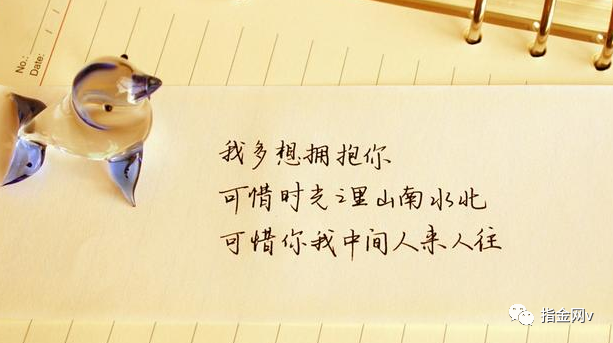 No.:
Date:
我多想拥抱你
可惜时光之里山南水北
可惜你我中间人来人往
指金网v